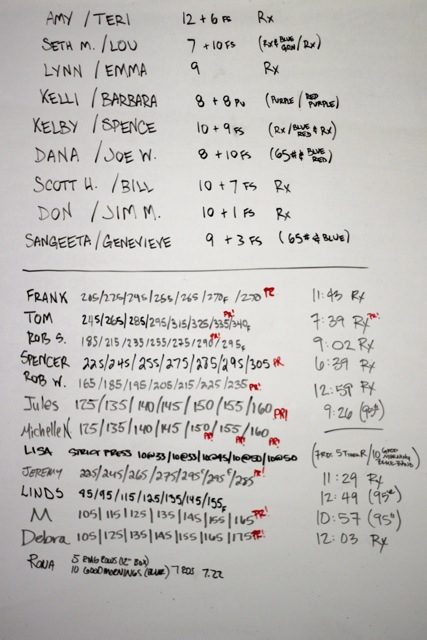 AMY / TERI 12 + 6 FS Rx
SETH M. / LOU 7 + 10 FS (Rx & BLUE GRN / Rx)
LYNN / EMMA 9 Rx
KELLI / BARBARA 8 + 8 PU (PURPLE / RED PURPLE)
KELBY / SPENCE 10 + 9 FS (Rx / BLUE RED & Rx)
DANA / JOE W. 8 + 10 FS (65# & BLUE RED)
SCOTT H. / BILL 10 + 7 FS Rx
DON / JIM M. 10 + 1 FS Rx
SANGEETA / GENEVIEVE 9 + 3 FS (65# & BLUE)
FRANK /275/295/255/265/270F/270 PR 11:43 Rx
TOM 245/265/285/295/315/325/335/340F PR! 7:39 Rx PR!
ROB S. 185/215/235/255/275/290/295F PR! 9:02 Rx
SPENCER 225/245/255/275/285/295/305 PR 6:39 Rx
ROB W. 165/185/195/205/215/225/235 PR! 12:59 Rx
Jules 125/135/140/145/150/155/160 PR! 9:26 (95#)
Michelle N 125/135/140/145/150/155/160 PR! PR! PR!
LISA STRICT PRESS 10@33/10@33/10@45/10@50/10@50 (7 RDS: 5 /10 GOOD MORNING)
JEREMY 225/245/265/275/295F/295F/285 PR! 11:29 Rx
LINDS 95/95/115/125/135/145/155F 12:49 (95#)
M 105/115/125/135/145/155/165 PR! 10:57 (95#)
Debora 105/125/135/145/155/165/175 PR! 12:03 Rx
RONA 5 RING ROWS (12" BOX)
10 GOOD MORNINGS (BLUE) 7 RDS 7:22